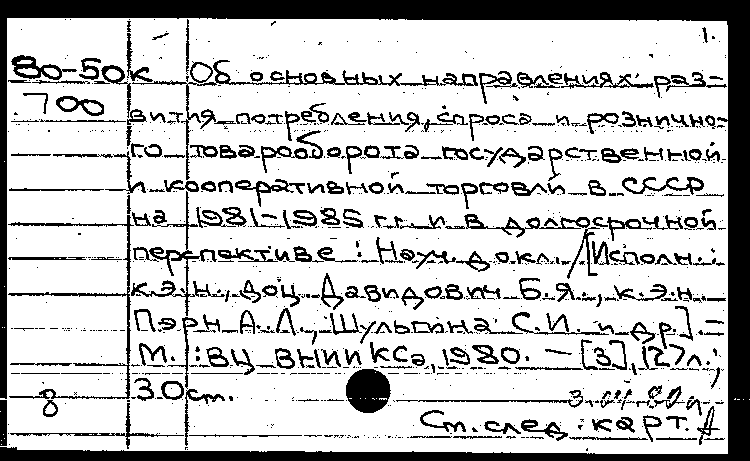 1.
80-50к Об основных направлениях раз-
700 вития потребления, спроса и рознично-
го товарооборота государственной
и кооперативной торговли в СССР
на 1981-1985 гг. и в долгосрочной
перспективе : Науч. докл. /[Исполн.:
к.э.н., доц Давидович Б.Я., к.э.н.
Пэрн А.Л., Шульгина С.И. и др]. -
М. : ВЦ ВНИИКСэ, 1980. - [3], 127 л.;
8 30 см.
Ст. след. карт.